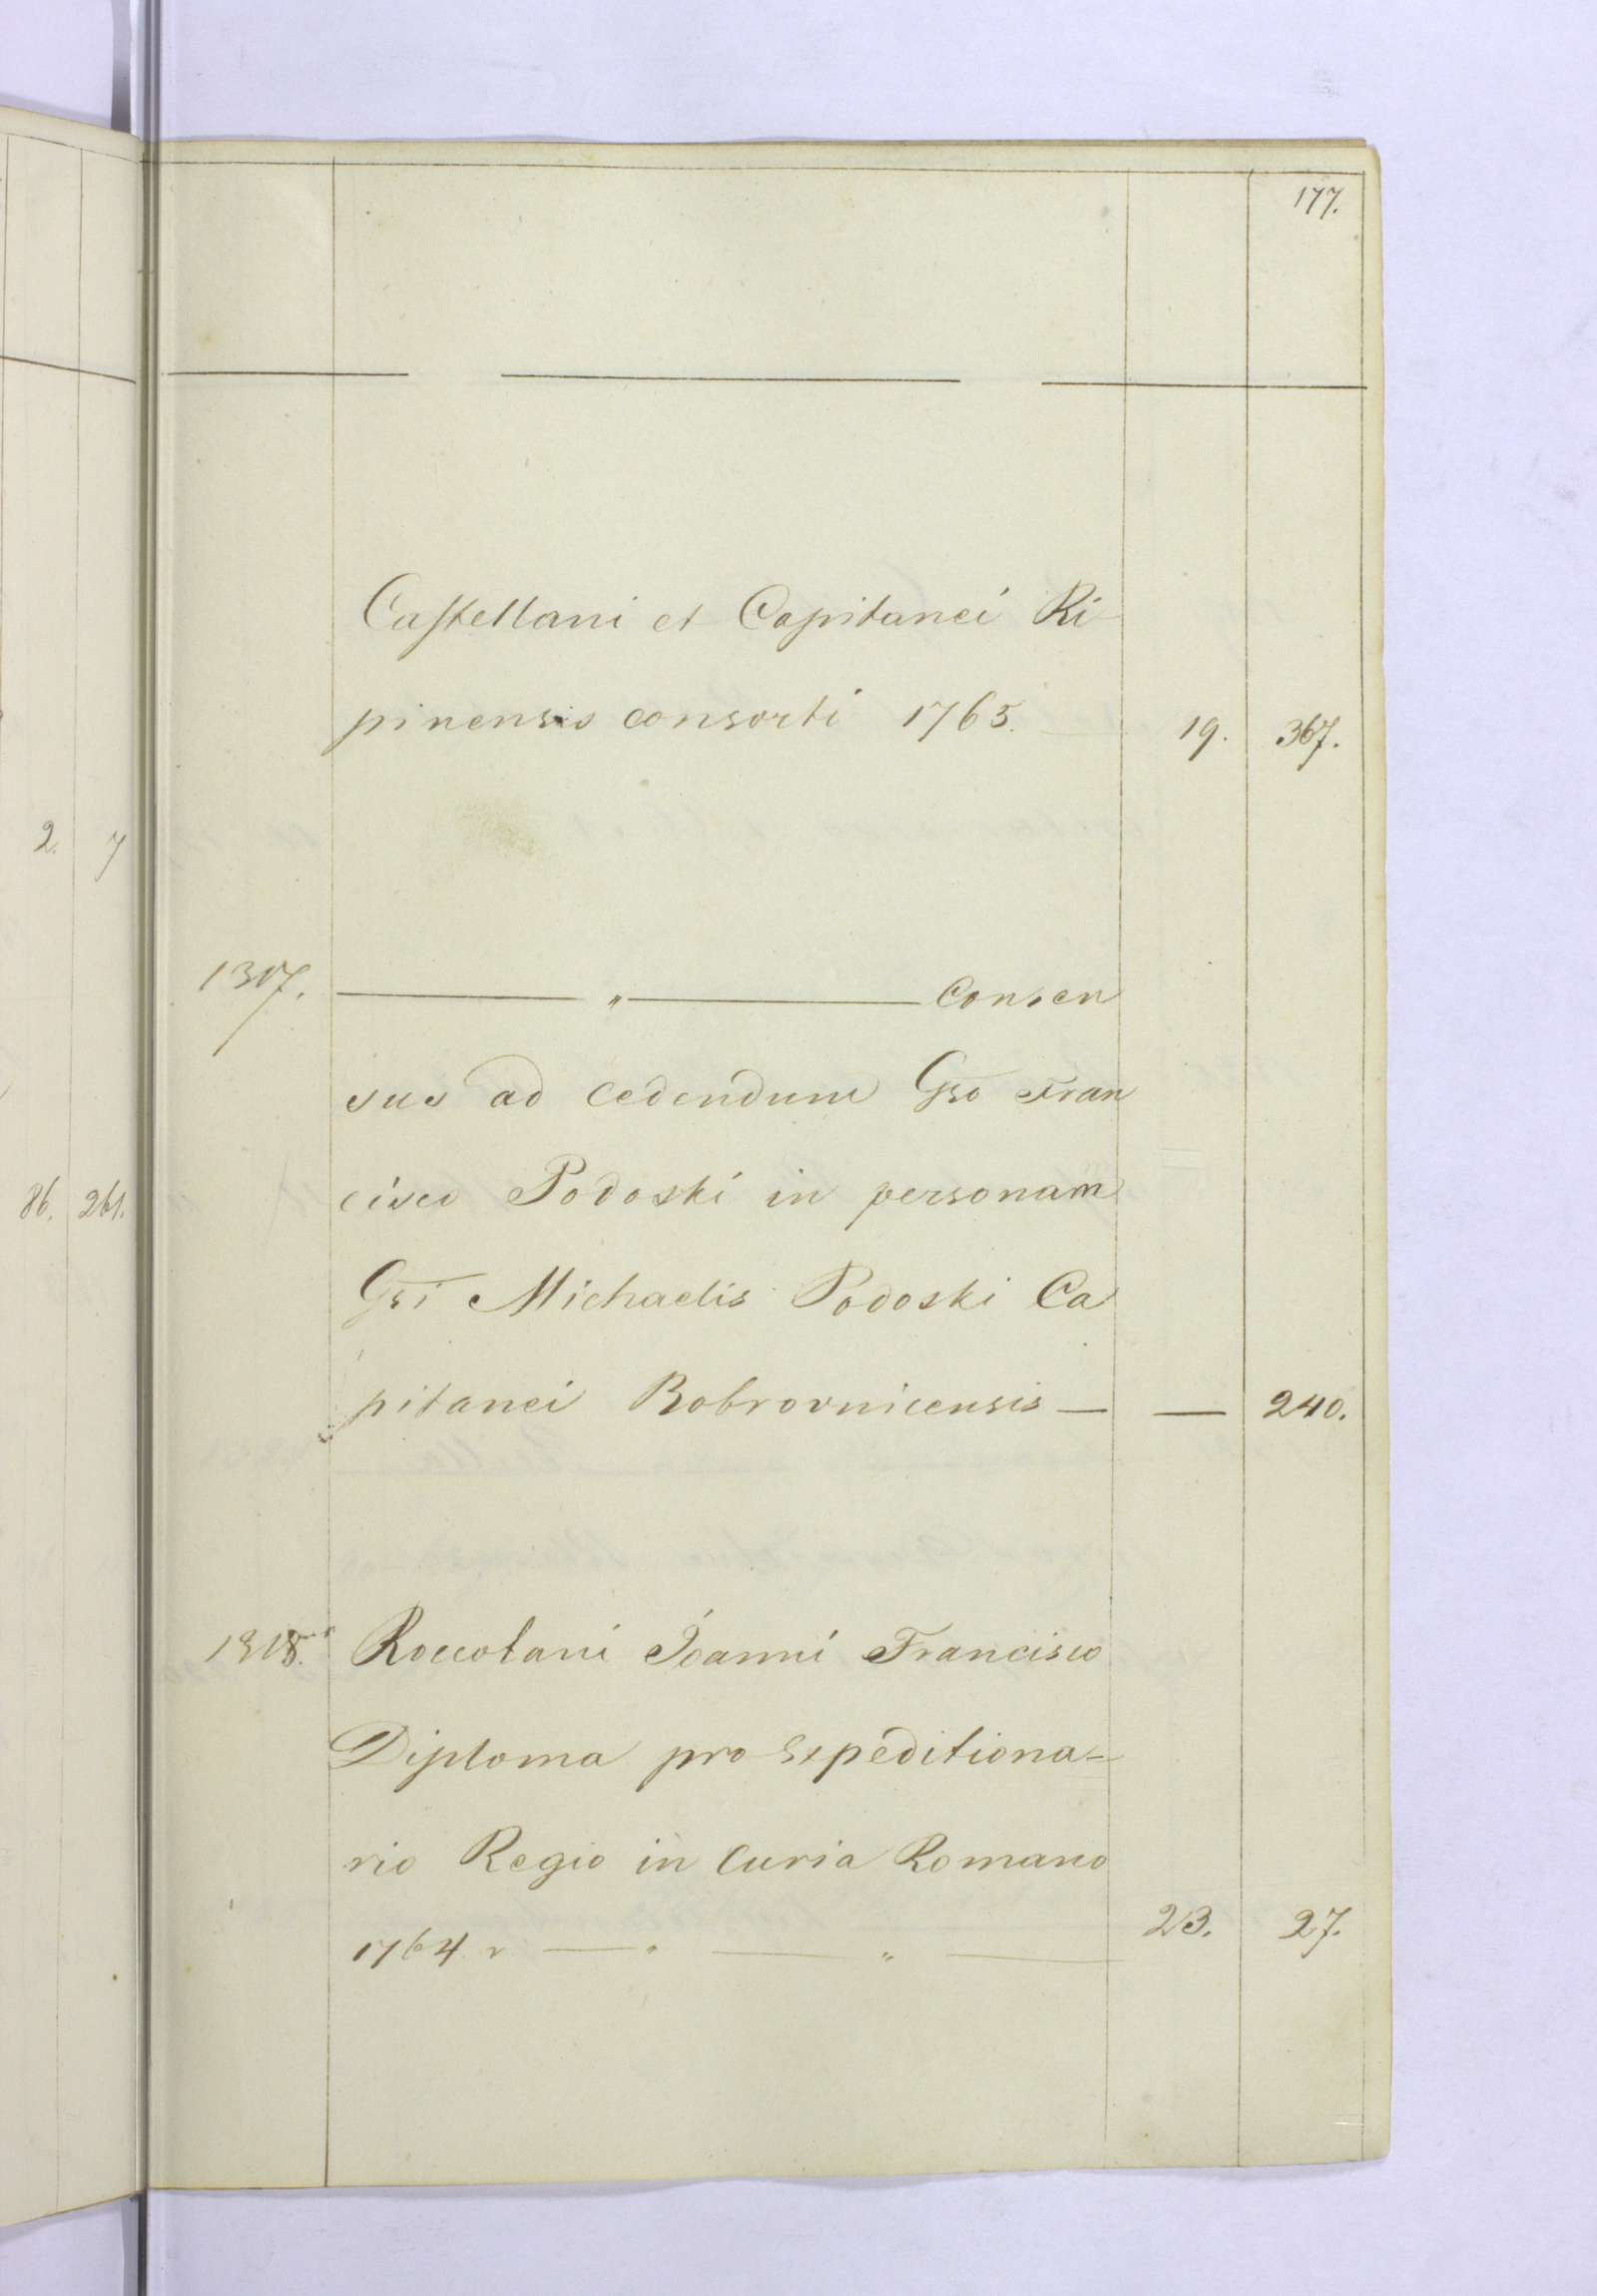 177.
Castellani et Capitanei Ri-
pinensis consorti 1765. 19. 367.
2. 7
1307. — " — Consen
sus ad cedendum Gso Fran
cisco Podoski in personam
86. 261.
Gsi Michaelis Podoski Ca
pitanei Bobrovnicensis — — 240.
Roccotani Joanni Francisco
Diploma pro Expeditiona=
rio Regio in Curia Romano
1764 r — " — " — 23. 27.